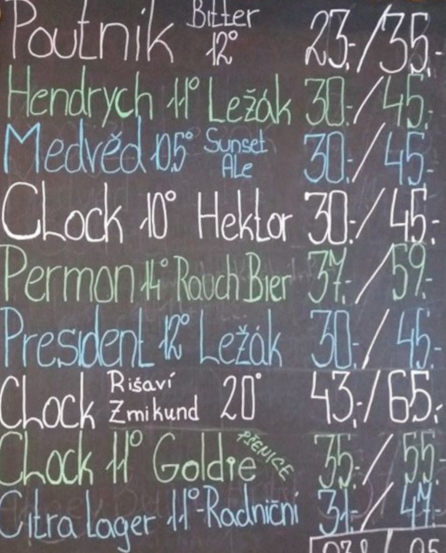 Poutník Bitter 12° 23,-/35,-
Hendrych 11° Ležák 30,-/45,-
Medvěd 10,5° Sunset Ale 30,-/45,-
CLock 10° Hektor 30,-/45,-
Permon 14° Rauch Bier 37,-/59,-
President 12° Ležák 30,-/45,-
CLock Rišaví Zmikund 20° 43,-/65,-
CLock 11° Goldie PŠENICE 35,-/55,-
Citra Lager 11°-Radniční 31,-/47,-